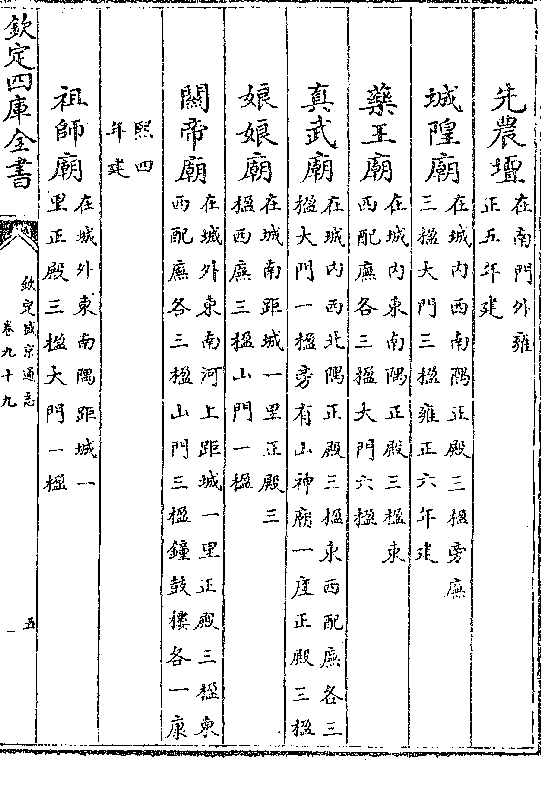 先農壇在南門外雍
正五年建
城隍廟在城内西南隅正殿三楹旁廡
三楹大門三楹雍正六年建
藥王廟在城内東南隅正殿三楹東
西配廡各三楹大門六楹
真武廟在城内西北隅正殿三楹東西配廡各三
楹大門一楹旁有山神廟一座正殿三楹
娘娘廟在城南距城一里正殿三
楹西廡三楹山門一楹
關帝廟在城外東南河上距城一里正殿三楹東
西配廡各三楹山門三楹鐘鼓樓各一康
熙四
年建
祖師廟在城外東南隅距城一
里正殿三楹大門一楹
欽定四庫全書
欽定盛京通志
卷九十九
五